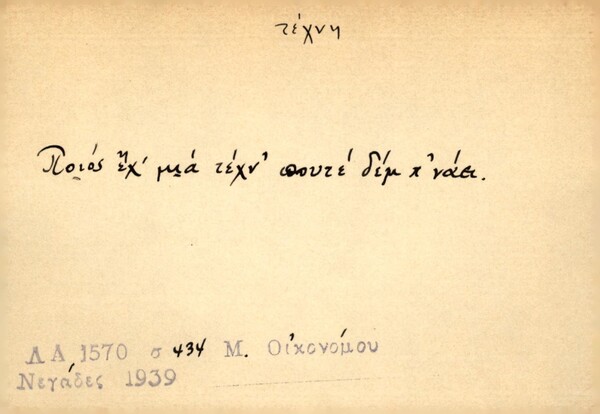 τέχνη
Ποιός ἔχ' μιά τέχν' πουτέ δέμ π'νάει.
ΛΑ 1570 σ 434 Μ. Οἰκονόμου
Νεγάδες 1939